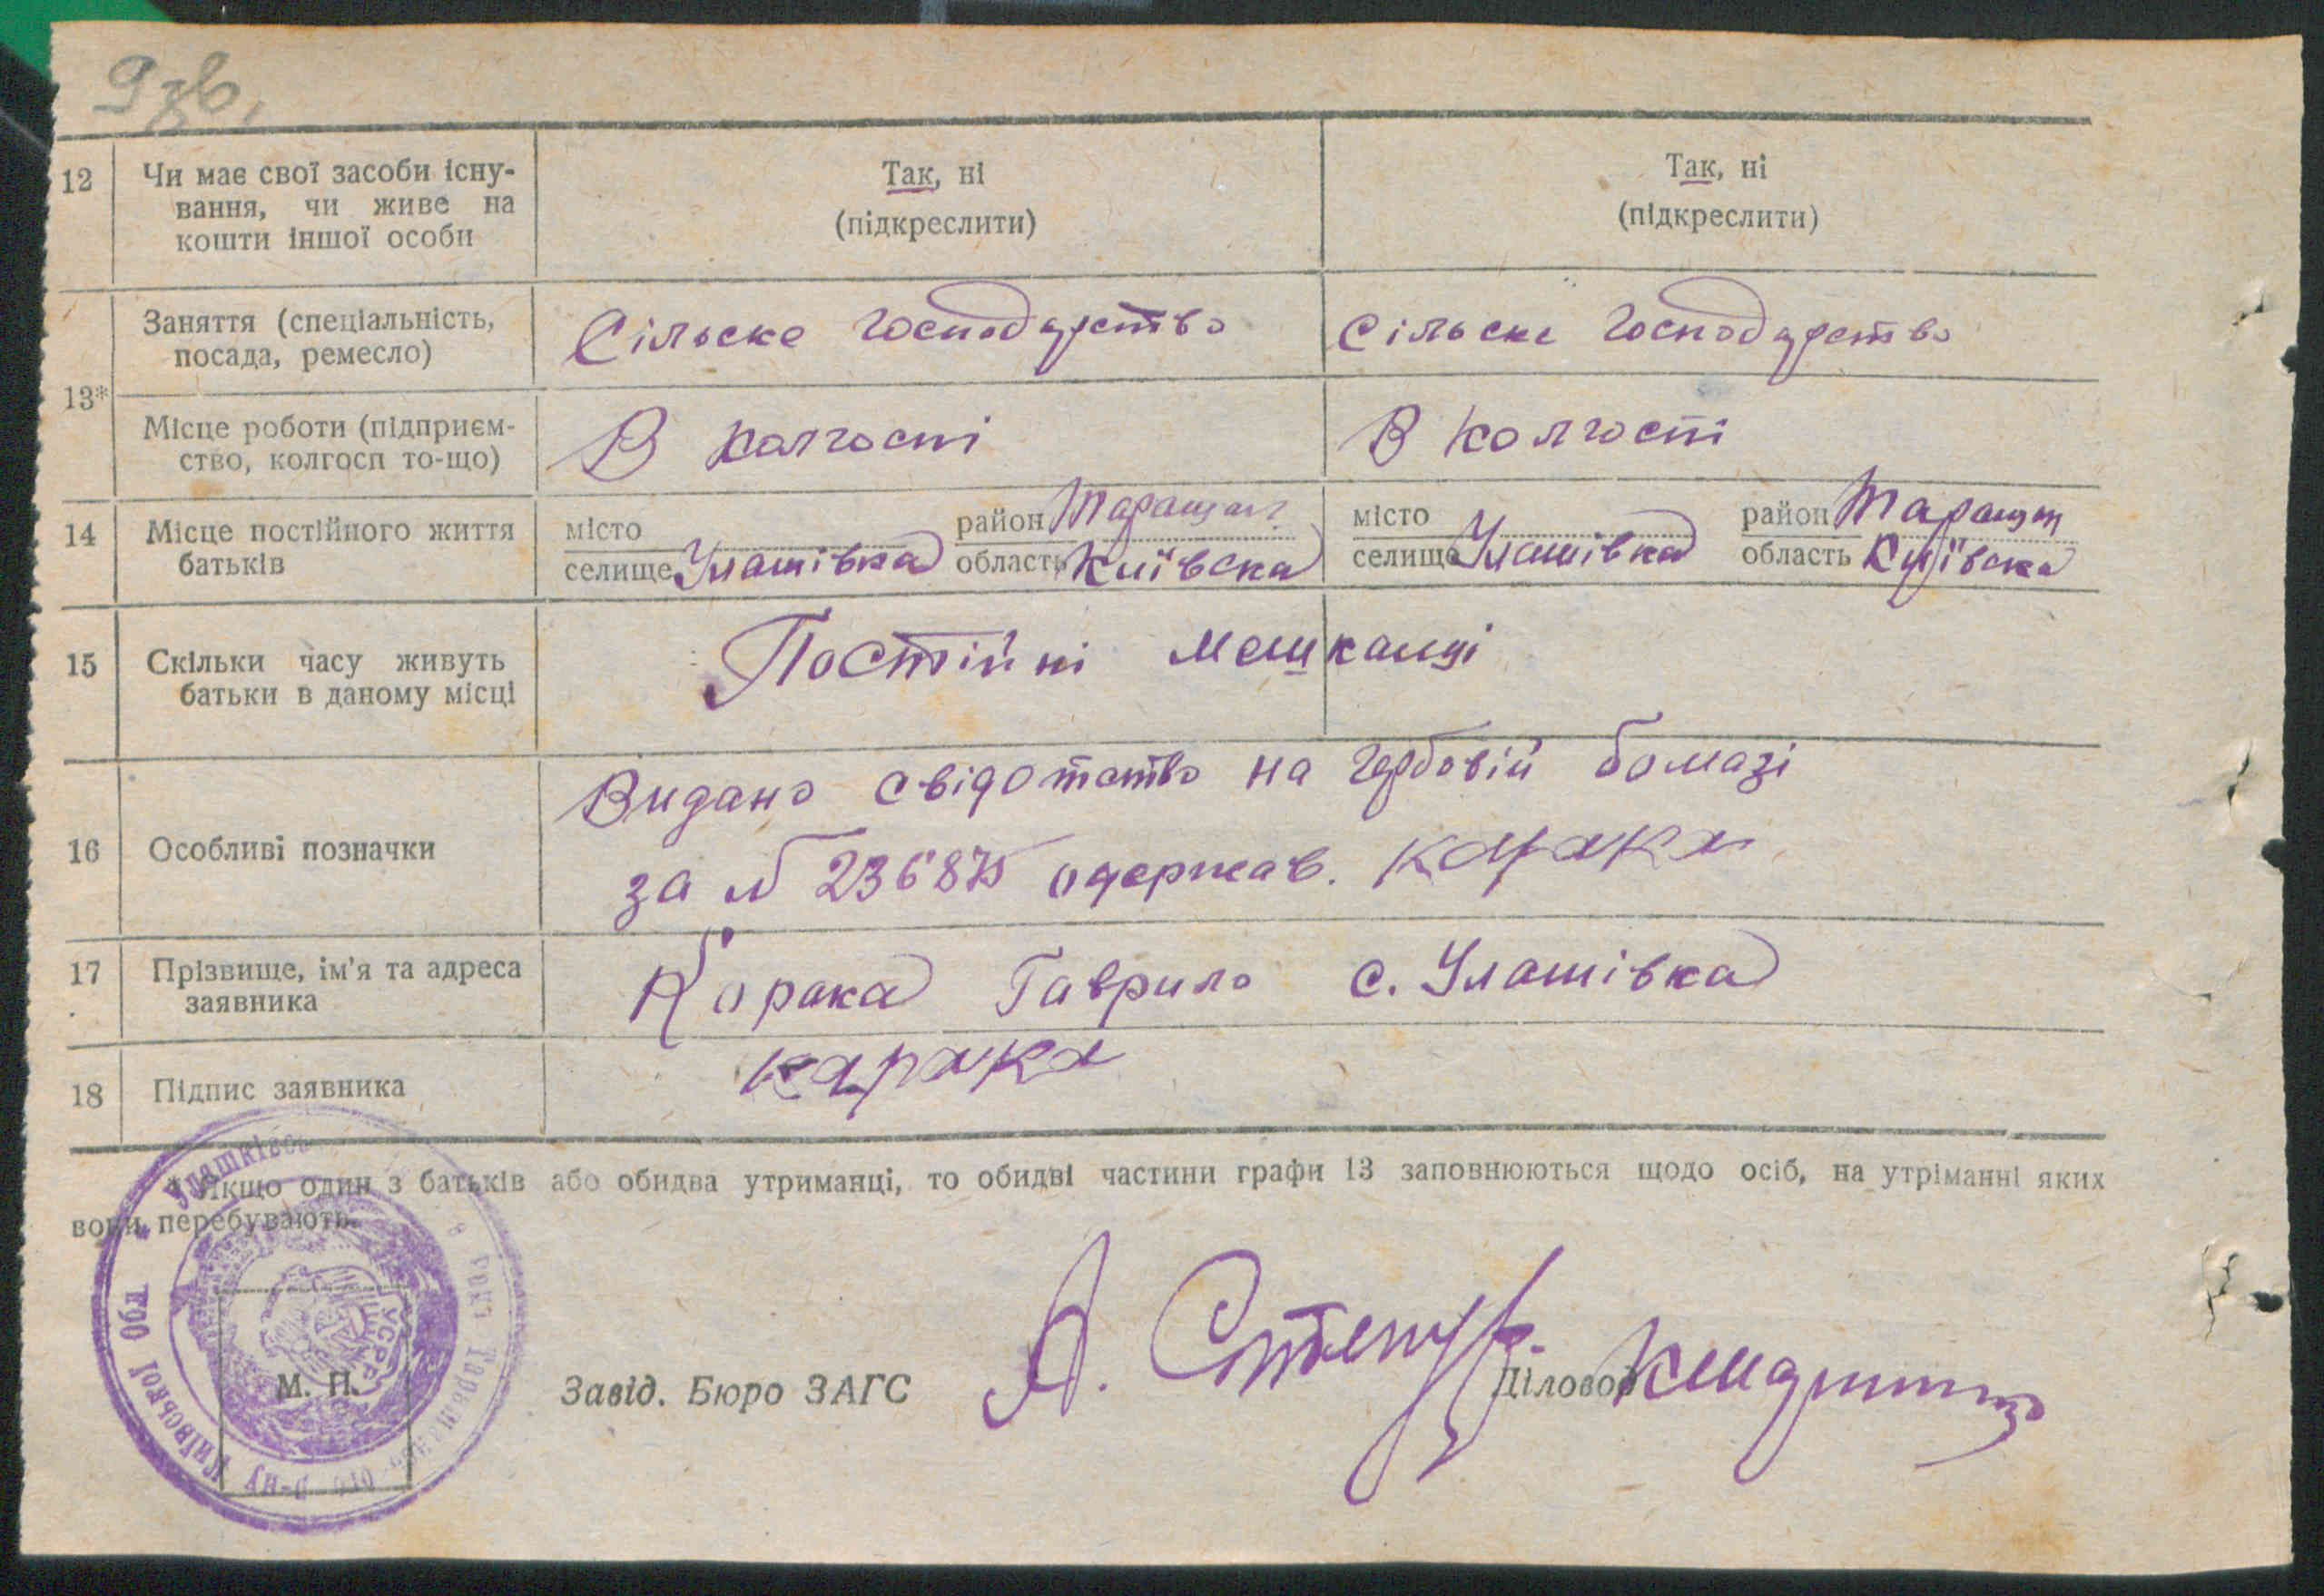 9 зв.
12 Чи має свої засоби існу- Так, ні Так, ні
вання, чи живе на (підкреслити) (підкреслити)
кошти іншої особи
13*
Заняття (спеціальність, Сільске господарство Сільске господарство
посада, ремесло)
Місце роботи (підприєм- В колгоспі В колгоспі
ство, колгосп то-що)
14 Місце постійного життя місто район Таращан місто район Таращан
батьків селище Улашівка область Київска селище Улашівка область Київска
15 Скільки часу живуть Постійні мешканці
батьки в даному місці
Видано свідотство на гербовій бомазі
16 Особливі позначки
за № 236875 одержав. Карака
17 Прізвище, ім'я та адреса Корака Гаврило с. Улашівка
заявника
18 Підпис заявника карака
* Якщо один з батьків або обидва утриманці, то обидві частини графи 13 заповнюються щодо осіб, на утріманні яких
вони перебувають.
Київської Обл
р-ну
УСРР
М. П.
Завід. Бюро ЗАГС А. Діловод